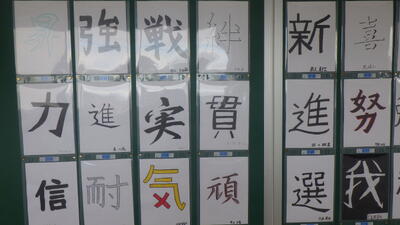 昇 強 戦 絆 新 喜
力 進 実 貫 進 努
信 耐 気 頑 選 我